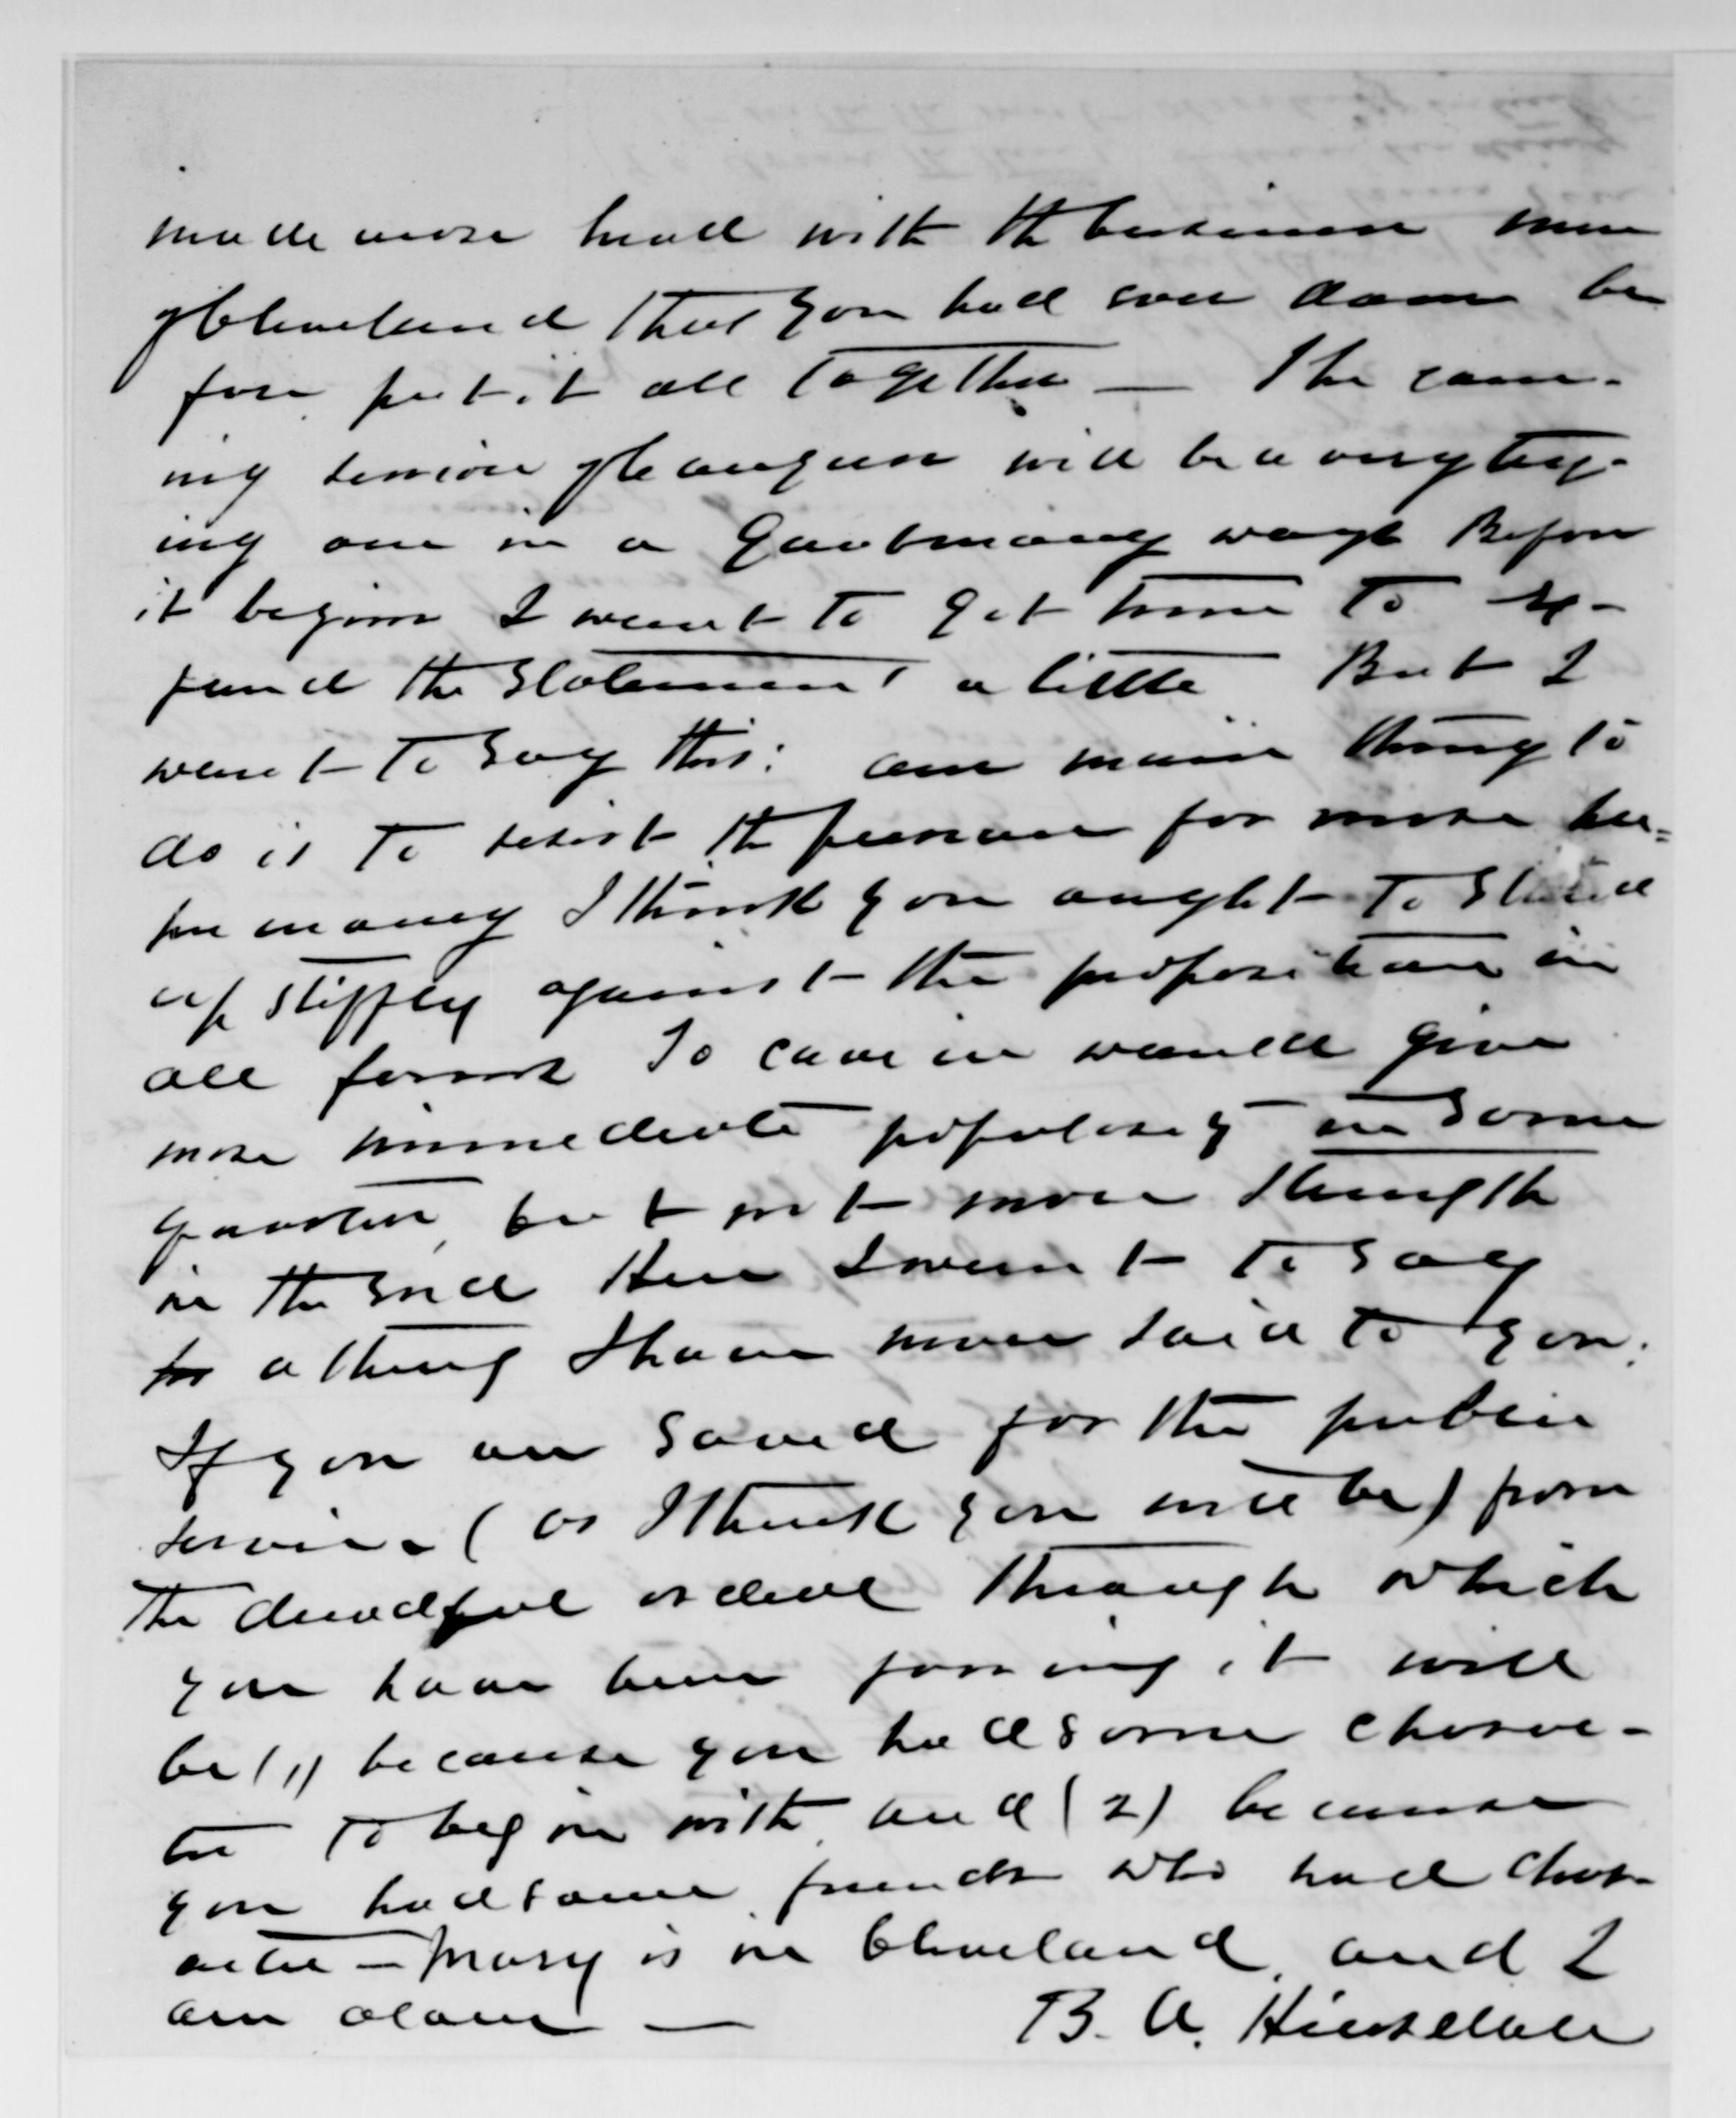 made more head with the business men
of Cleveland that you had ever done be
fore put it all together — The com-
ing session of Congress will be a very try-
ing one in a Government way Before
it begins I want to get time to ex-
pand the statement a little But I
want to say this: one main thing to
do is to resist the pressure for more pa-
per money I think you ought to stand
up stiffly against the proposition in
all forms To cave in would give
more immediate popularity in some
quarters, but not more strength
in the end Here I want to say
a thing I have never said to you:
If you are saved for the public
service (as I think you will be) from
the dreadful ordeal through which
you have been passing it will
be (1) because you had some charac-
ter to begin with and (2) because
you had some friends who had char-
acter — Mary is in Cleveland and I
am alone — B. A. Hinsdale